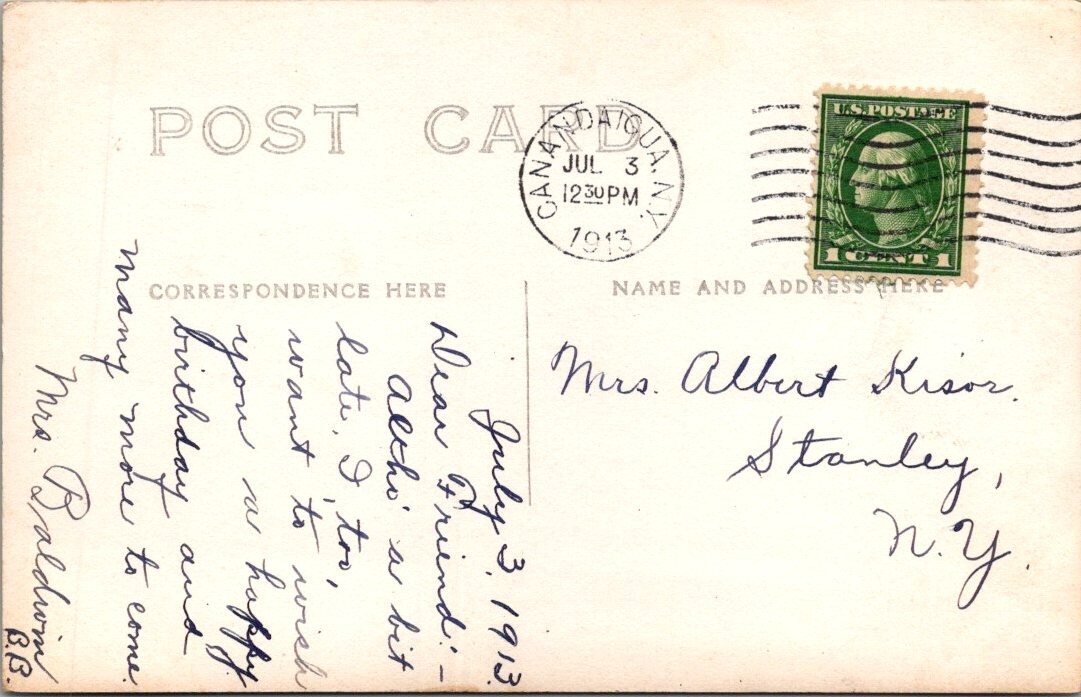 POST CARD
CANANDAIGUA. N.Y.
JUL 3
12 30 PM
1913
U.S. POSTAGE
1 CENT 1
CORRESPONDENCE HERE
NAME AND ADDRESS HERE
July 3, 1913.
Dear Friend:-
Altho' a bit
late, I, too,
want to wish
you a happy
birthday and
many more to come.
Mrs. Baldwin
B.B.
Mrs. Albert Kisor.
Stanley,
N.Y.